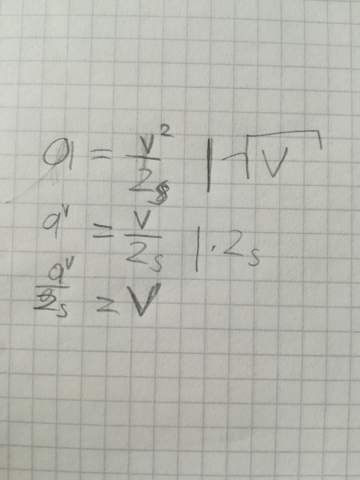 a = v²/2s | √v
a^v = v/2s | · 2s
a^v/2s = v